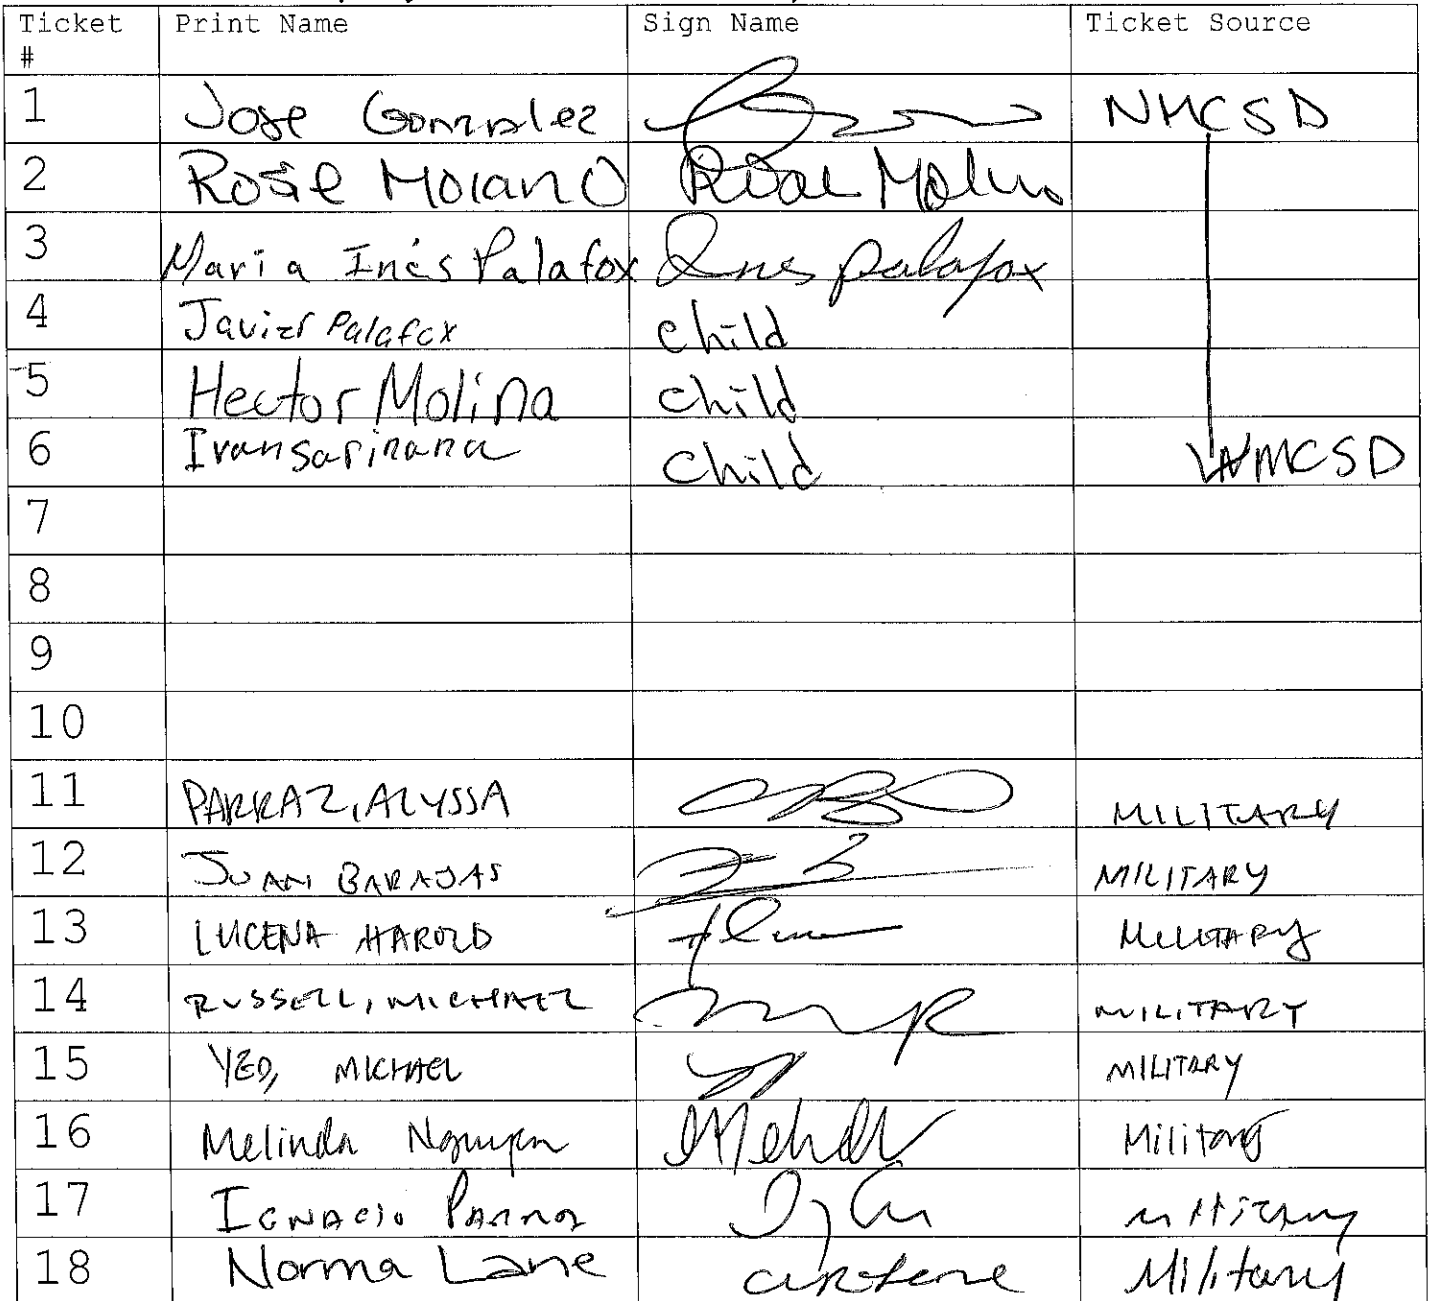 Ticket # Print Name Sign Name Ticket Source
1 Jose Gonzalez NMCSD
2 Rose Molano
3 Maria Inés Palafox Ines palafox
4 Javier Palafox child
5 Hector Molina child
6 Ivan Sarinana child NMCSD
7
8
9
10
11 PARRAZ, ALYSSA MILITARY
12 JUAN BARAJAS MILITARY
13 LUCENA HAROLD MILITARY
14 RUSSELL, MICHAEL MILITARY
15 YEO, MICHAEL MILITARY
16 Melinda Nguyen Military
17 IGNACIO Parraz military
18 Norma Lane Military